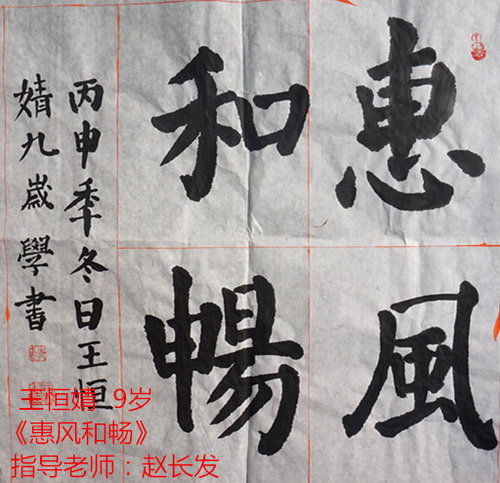 惠風
和暢
丙申季冬日王恒
婧九歲學書
王恒婧 9岁
《惠风和畅》
指导老师：赵长发